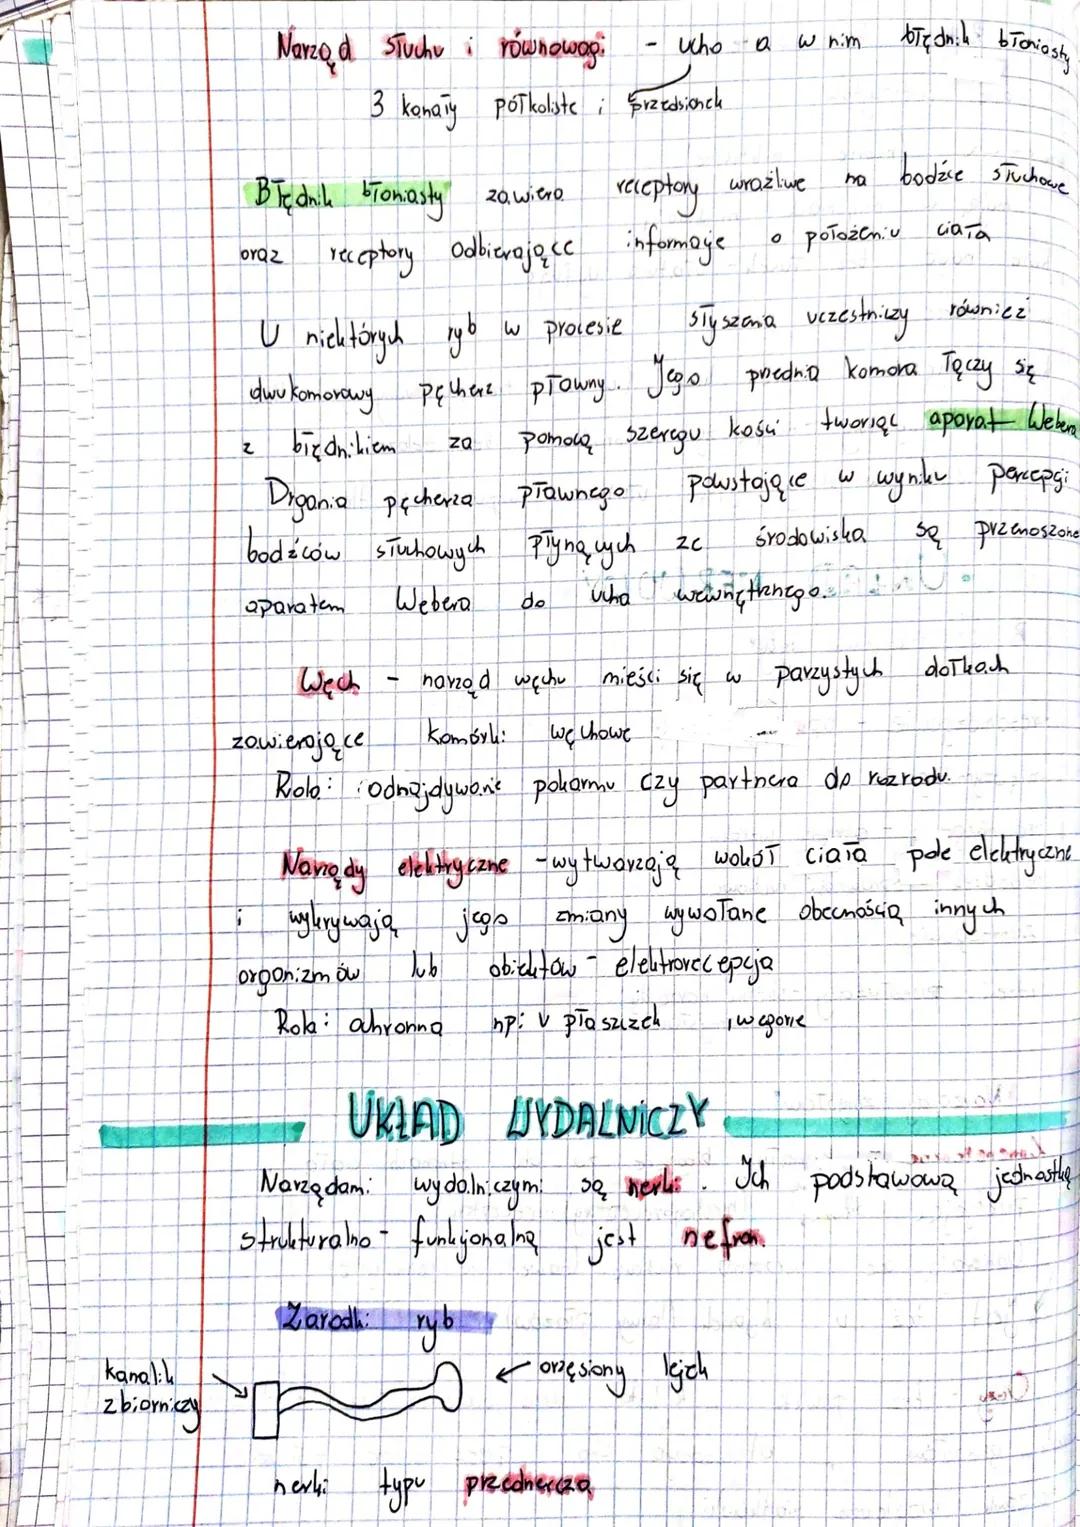 Narząd słuchu i równowagi - ucho a w nim błędnik błoniasty
3 kanały półkoliste i przedsionek
Błędnik błoniasty zawiera receptory wrażliwe na bodźce słuchowe
oraz receptory odbierające informacje o położeniu ciała
U niektórych ryb w procesie słyszenia uczestniczy również
dwukomorowy pęcherz pławny. Jego przednia komora łączy się
z błędnikiem za pomocą szeregu kości tworząc aparat Webera
Drgania pęcherza pławnego powstające w wyniku percepcji
bodźców słuchowych płynących ze środowiska są przenoszone
aparatem Webera do ucha wewnętrznego.
Węch - narząd węchu mieści się w parzystych dołkach
zawierające komórki węchowe
Rola: odnajdywanie pokarmu czy partnera do rozrodu.
Narządy elektryczne - wytwarzają wokół ciała pole elektryczne
i wykrywają jego zmiany wywołane obecnością innych
organizmów lub obiektów - elektrorecepcja
Rola: ochronna np: u płaszczek , węgorze
UKŁAD WYDALNICZY
Narządami wydalniczymi są nerki. Ich podstawową jednostką
strukturalno - funkcjonalną jest nefron.
Zarodki ryb
kanalik
zbiorniczy
orzęsiony lejek
nerki typu przednercza